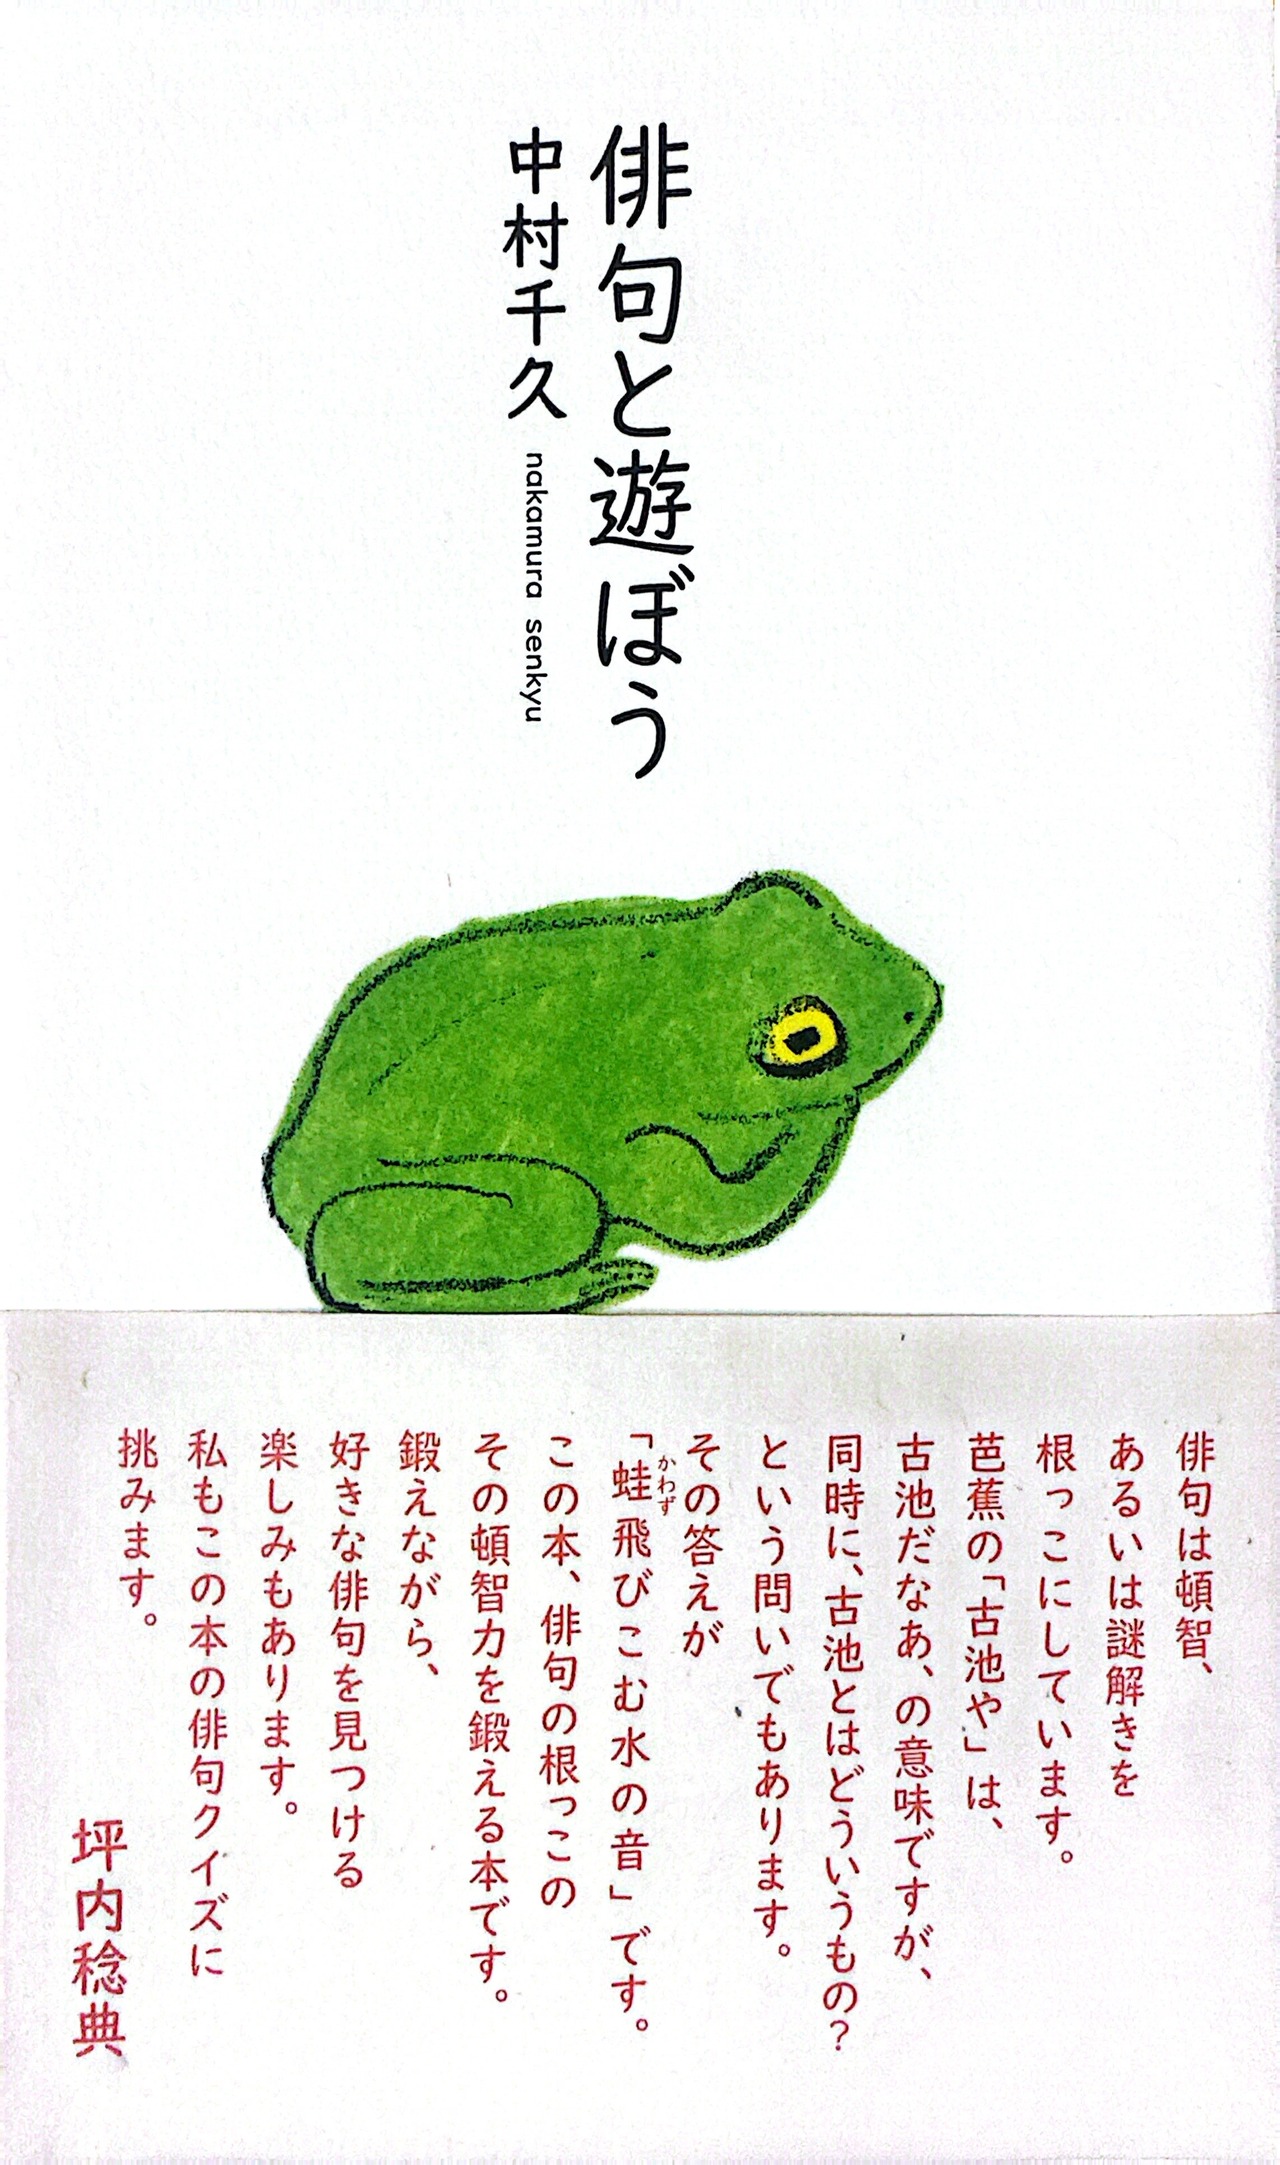 俳句と遊ぼう
中村千久 nakamura senkyu
俳句は頓智、
あるいは謎解きを
根っこにしています。
芭蕉の「古池や」は、
古池だなあ、の意味ですが、
同時に、古池とはどういうもの？
という問いでもあります。
その答えが
「蛙飛びこむ水の音」です。
かわず
この本、俳句の根っこの
その頓智力を鍛える本です。
鍛えながら、
好きな俳句を見つける
楽しみもあります。
私もこの本の俳句クイズに
挑みます。
坪内稔典